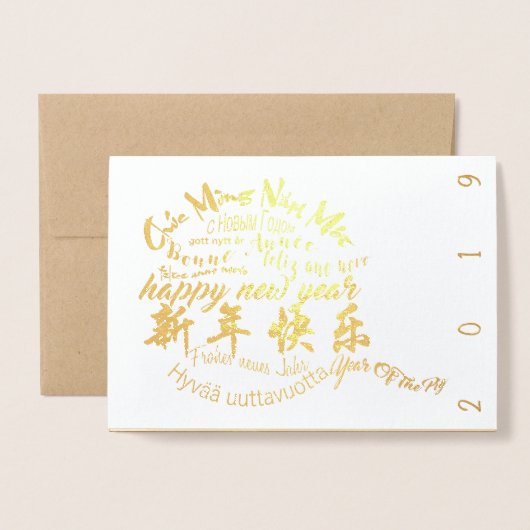 Chúc Mừng Năm Mới
с Новым Годом
gott nytt år
Bonne Année
feliz ano novo
happy new year
新年快乐
Frohes neues Jahr
Year Of The Pig
Hyvää uuttavuotta
2019